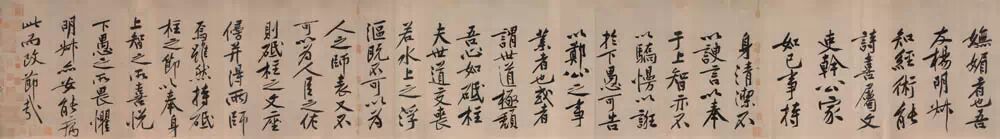 嫵媚者也吾
友楊明叔
知經術能
詩喜屬文
吏幹公家
如己事持
身清潔不
以諛言以奉
于上智亦不
以驕慢以誑
於下愚可告
以鄭公之事
業者也或者
謂世道極頹
吾心如砥柱
夫世道交喪
若水上之浮
漚既不可以為
人之師表又不
可以為人臣之佐
則砥柱之文座
傍并得兩師
焉雖然持砥
柱之節以奉身
上智之所喜悅
下愚之所畏懼
明叔亦安能病
此而改節哉